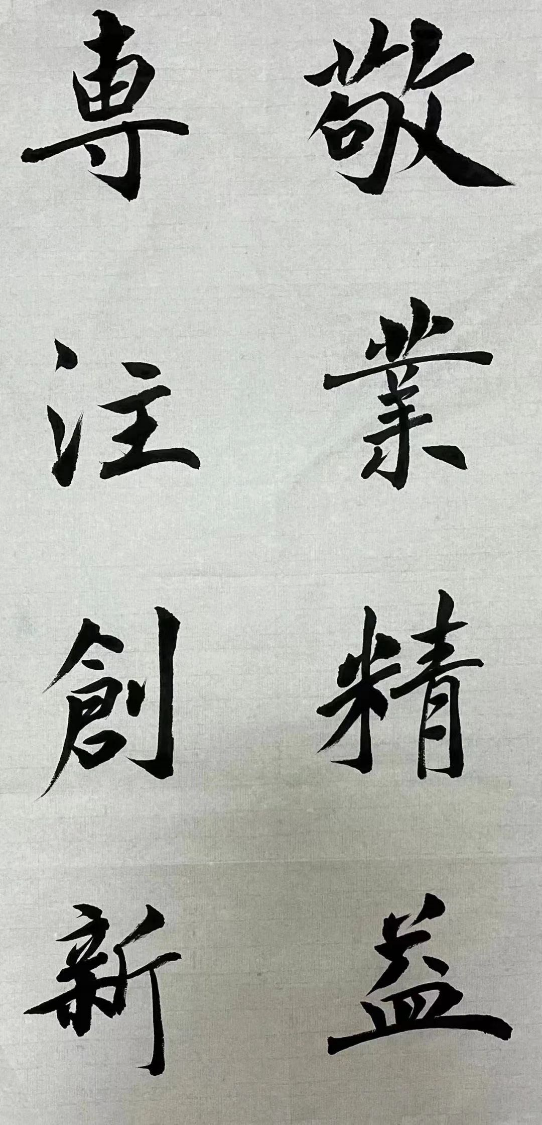 敬業精益
専注創新